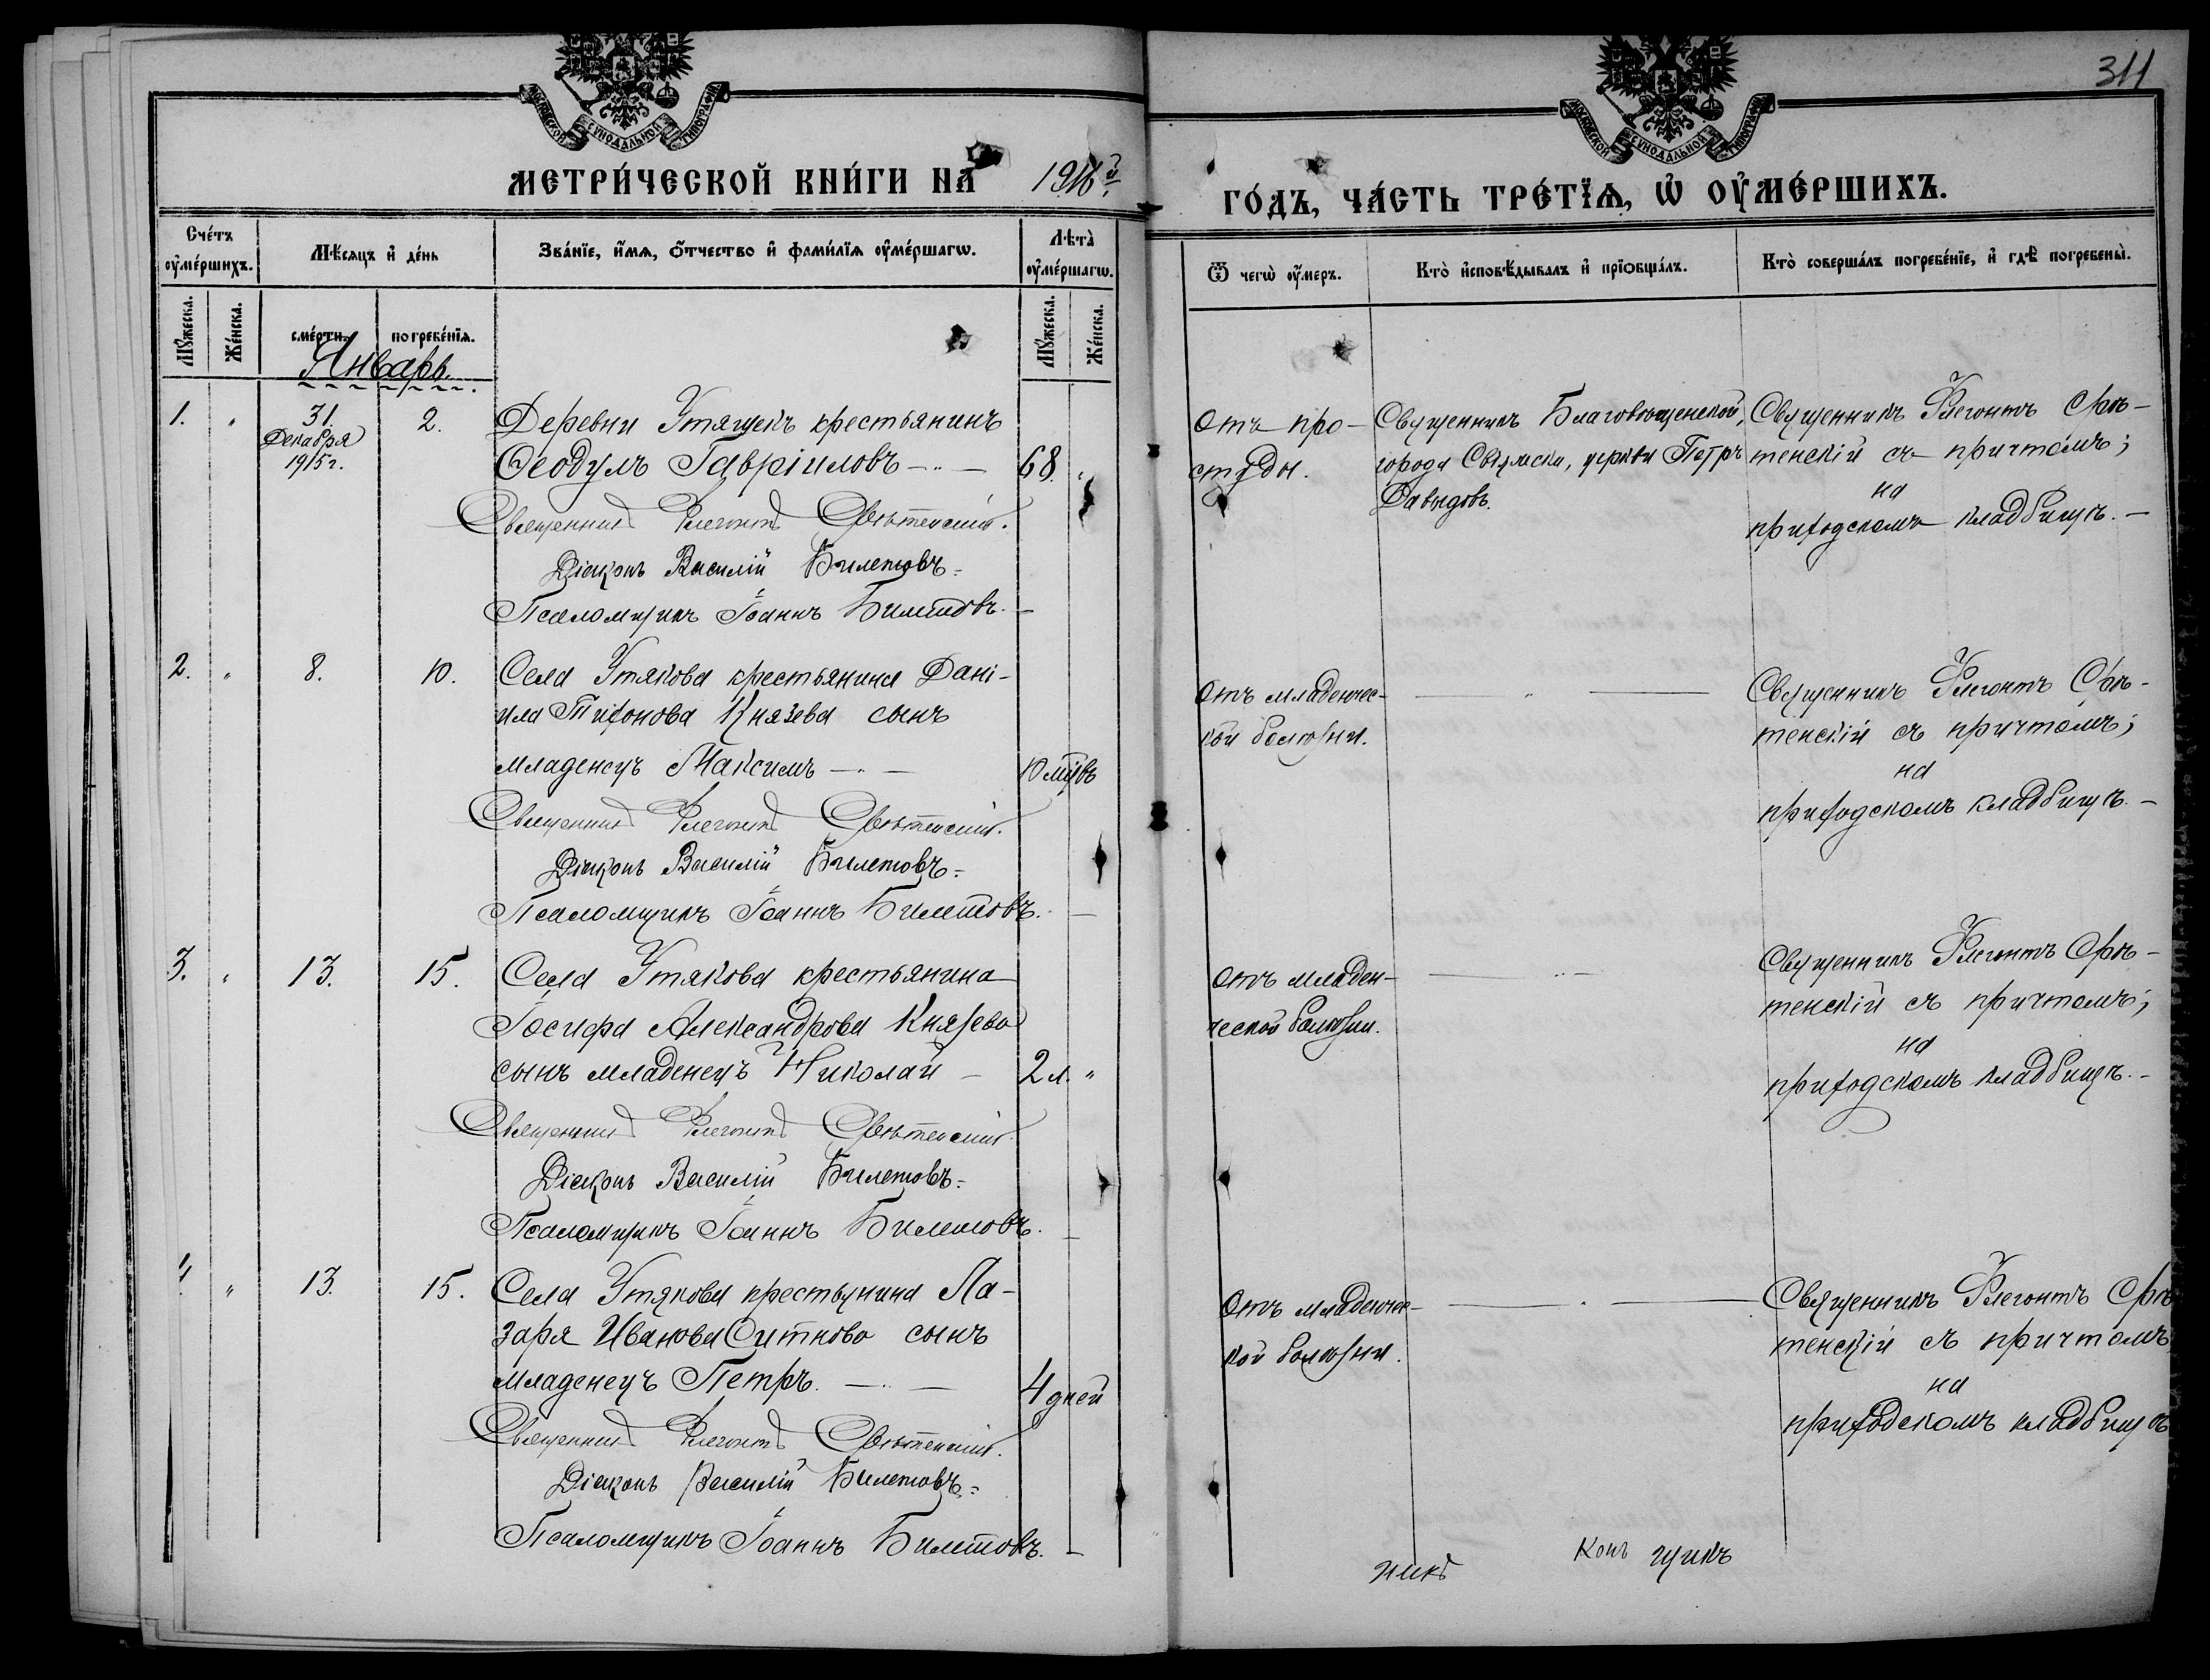 311
МОСКОВСКОЙ СУНОДАЛЬНОЙ ТИПОГРАФІИ
МОСКОВСКОЙ СУНОДАЛЬНОЙ ТИПОГРАФІИ
МЕТРИ́ЧЕСКОЙ КНИ́ГИ НА 1916й
ГО́ДЪ, ЧА́СТЬ ТРЕ́ТЇѦ, Ѡ҆ ОУ҆МЕ́РШИХЪ.
Сче́тъ оу҆ме́ршихъ.
Мѣ́сяцъ и҆ де́нь
Зва́нїе, и҆́мѧ, ѻ҆́тчество и҆ фами́лїѧ оу҆ме́ршагѡ.
Лѣта̀ оу҆ме́ршагѡ.
Ѿ чегѡ̀ оу҆́меръ.
Кто̀ и҆сповѣ́дывалъ и҆ прїѻбща́лъ.
Кто̀ соверша́лъ погребе́нїе, и҆ гдѣ̀ погребены̀.
Мꙋ́жеска.
Же́нска.
сме́рти.
погребе́нїѧ.
Мꙋ́жеска.
Же́нска.
Январь.
1. " 31. 2. Деревни Утяшекъ крестьянинъ
Декабря
1915 г.
Ѳеодулъ Гавріиловъ 68. "
Священникъ Флегонтъ Срѣтенскій.
Діаконъ Василій Билетовъ
Псаломщикъ Іоаннъ Билетовъ.
отъ про-
студы.
Священникъ Благовѣщенской,
города Свіяжска, церкви Петръ
Давыдовъ.
Священникъ Флегонтъ Срѣ-
тенскій съ причтомъ;
на
приходскомъ кладбищѣ.
2. " 8. 10. Села Утякова крестьянина Дані-
ила Тихонова Князева сынъ
младенецъ Максимъ 10 мцвъ
Священникъ Флегонтъ Срѣтенскій.
Діаконъ Василій Билетовъ
Псаломщикъ Іоаннъ Билетовъ.
отъ младенчес-
кой болѣзни.
Священникъ Флегонтъ Срѣ-
тенскій съ причтомъ;
на
приходскомъ кладбищѣ.
3. " 13. 15. Села Утякова крестьянина
Іосифа Александрова Князева
сынъ младенецъ Николай 2 л. "
Священникъ Флегонтъ Срѣтенскій.
Діаконъ Василій Билетовъ
Псаломщикъ Іоаннъ Билетовъ.
отъ младен-
ческой болѣзни.
Священникъ Флегонтъ Срѣ-
тенскій съ причтомъ;
на
приходскомъ кладбищѣ.
4. " 13. 15. Села Утякова крестьянина Ла-
заря Иванова Ситнова сынъ
младенецъ Петръ. 4 дней
Священникъ Флегонтъ Срѣтенскій.
Діаконъ Василій Билетовъ
Псаломщикъ Іоаннъ Билетовъ.
отъ младенчес-
кой болѣзни.
Священникъ Флегонтъ Срѣ-
тенскій съ причтомъ
на
приходскомъ кладбищѣ
никъ
конъ
щикъ